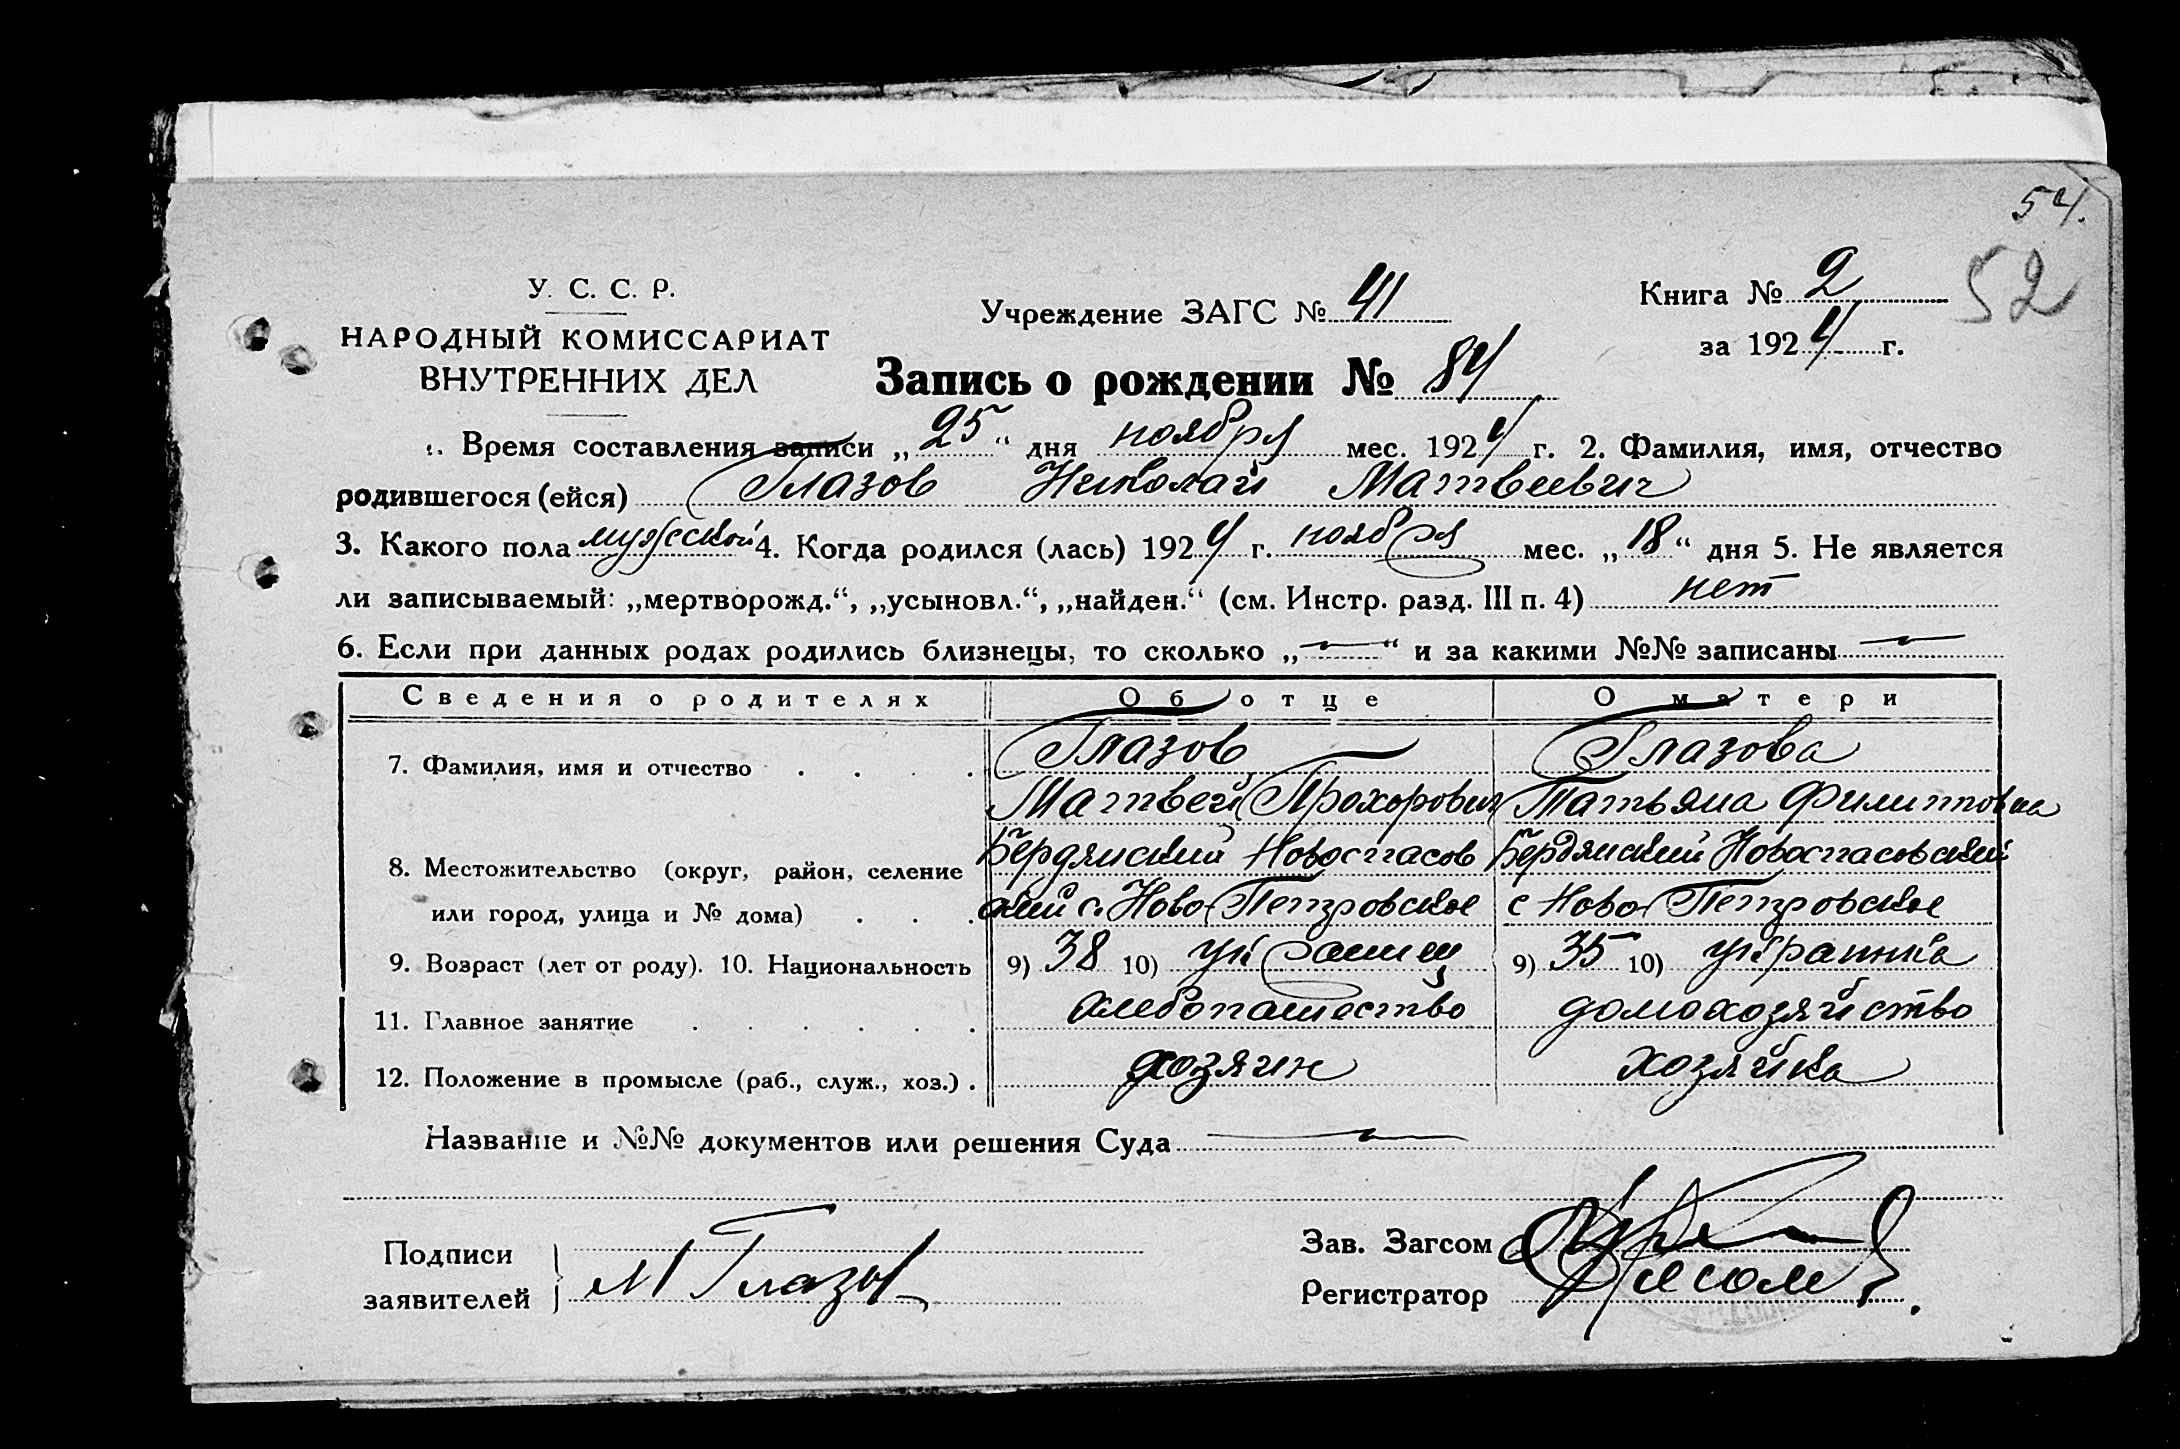 54.
52
У. С. С. Р.
НАРОДНЫЙ КОМИССАРИАТ
ВНУТРЕННИХ ДЕЛ
Учреждение ЗАГС № 41
Книга № 2
за 1924 г.
Запись о рождении № 84
1. Время составления записи „25“ дня ноября мес. 1924 г. 2. Фамилия, имя, отчество
родившегося (ейся) Глазов Николай Матвеевич
3. Какого пола мужеской 4. Когда родился (лась) 1924 г. ноября мес. „18“ дня 5. Не является
ли записываемый: „мертворожд.“, „усыновл.“, „найден.“ (см. Инстр. разд. III п. 4) нет
6. Если при данных родах родились близнецы, то сколько „—“ и за какими №№ записаны —
Сведения о родителях Об отце О матери
7. Фамилия, имя и отчество . . . . Глазов Глазова
Матвей Прохорович Татьяна Филипповна
8. Местожительство (округ, район, селение Бердянский Новоспасов Бердянский Новоспасовский
или город, улица и № дома) . . . ский с. Ново-Петровское с Ново-Петровское
9. Возраст (лет от роду). 10. Национальность 9) 38 10) украинец 9) 35 10) украинка
11. Главное занятие . . . . . . хлебопашество домохозяйство
12. Положение в промысле (раб., служ., хоз.) . хозяин хозяйка
Название и №№ документов или решения Суда —
Подписи
заявителей М Глазов
Зав. Загсом
Регистратор